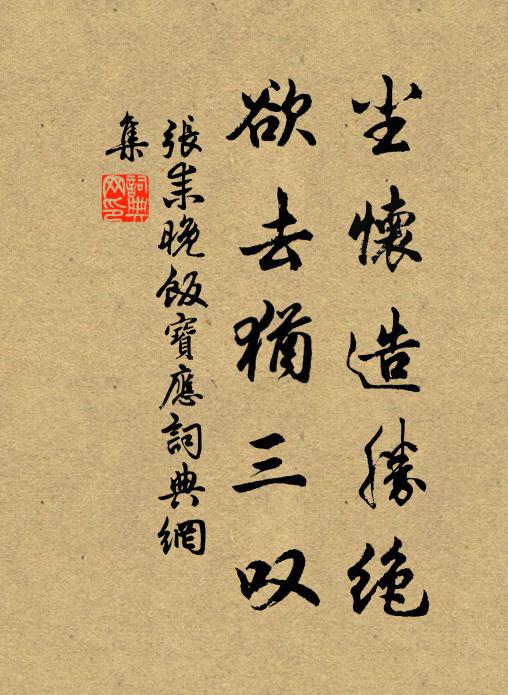 坐懷造勝絶
欲去猶三叹
張耒晚飯寶應詞典網
集
詞典網印